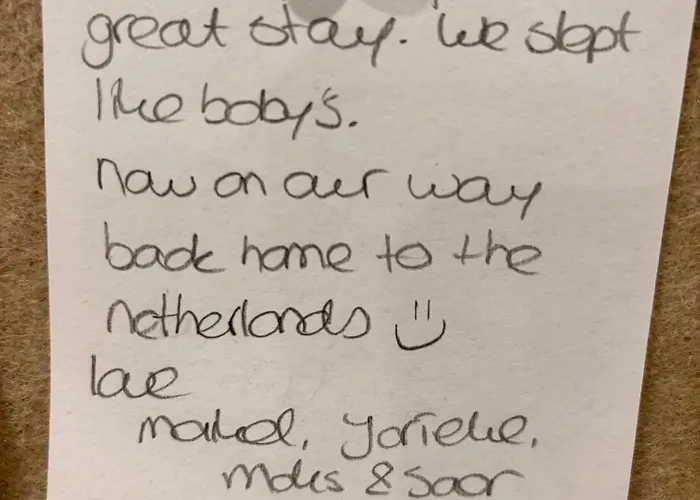 great stay. We slept
like baby's.
now on our way
back home to the
netherlands
love
&